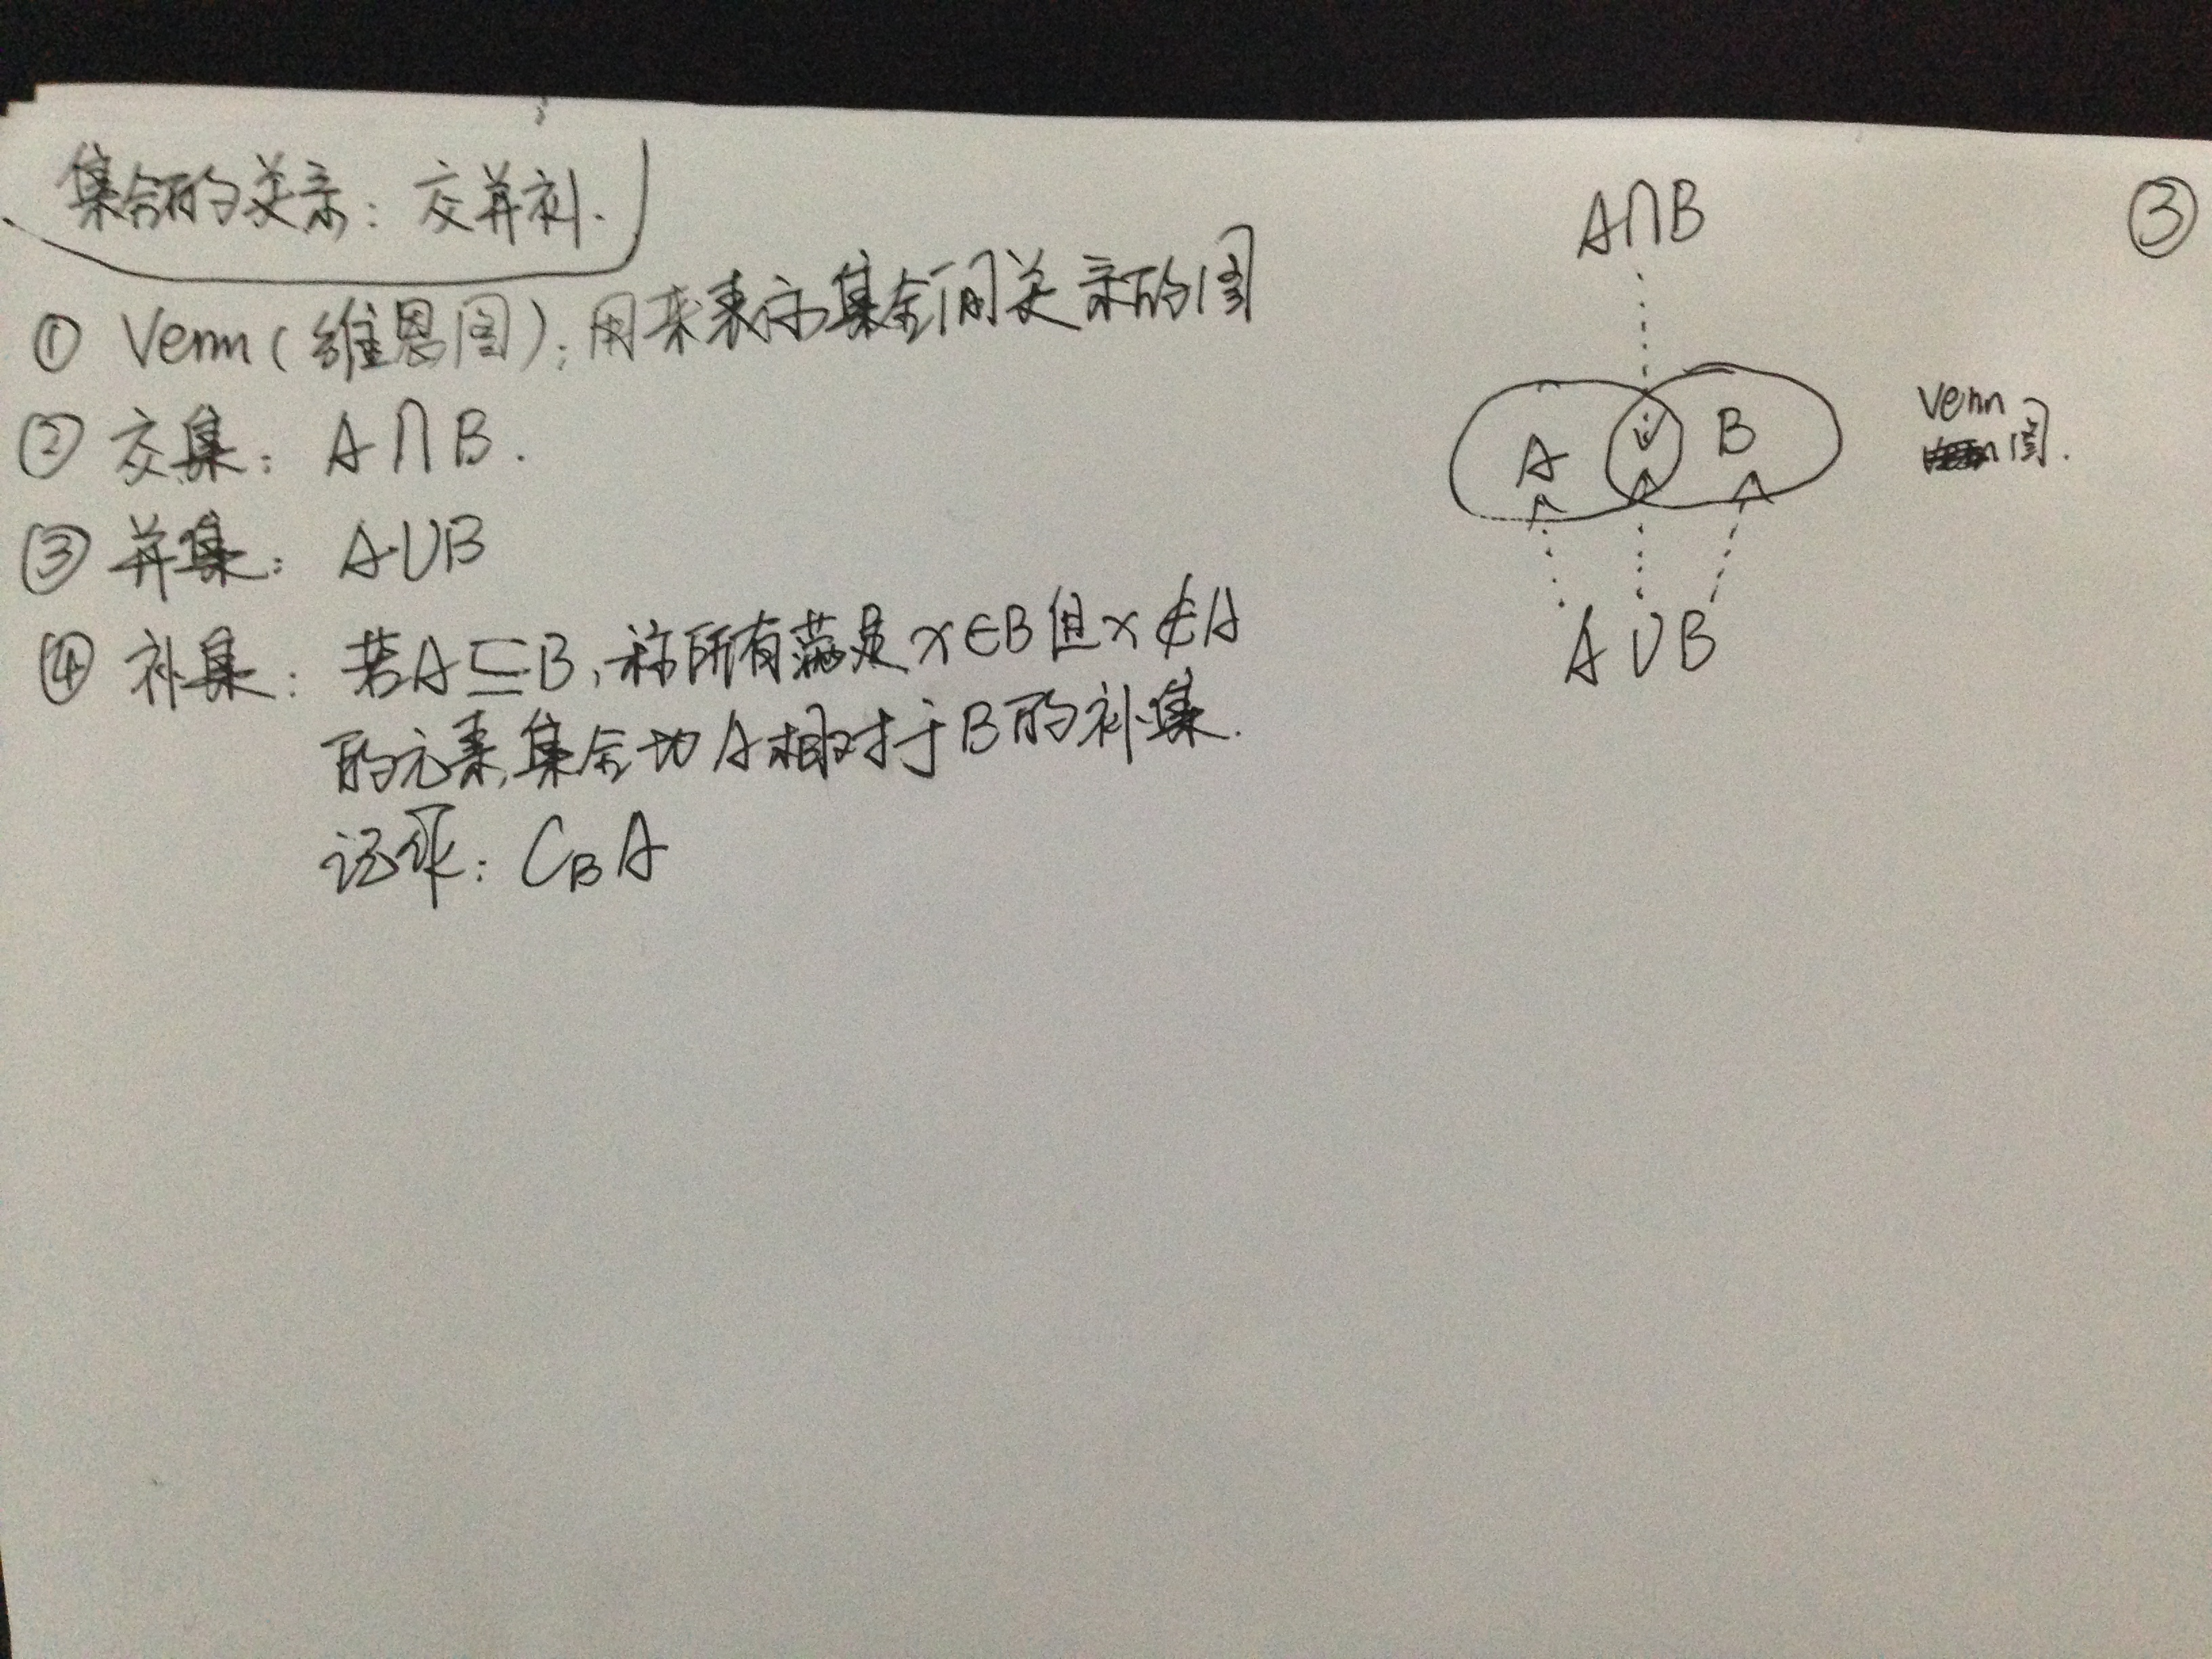 集合的关系：交并补.
① Venn（维恩图）：用来表示集合间关系的图
② 交集：A∩B.
③ 并集：A∪B
④ 补集：若A⊆B，称所有满足x∈B但x∉A
的元素集合为A相对于B的补集.
记作：C_B A
③
A∩B
A B
Venn
图.
A∪B